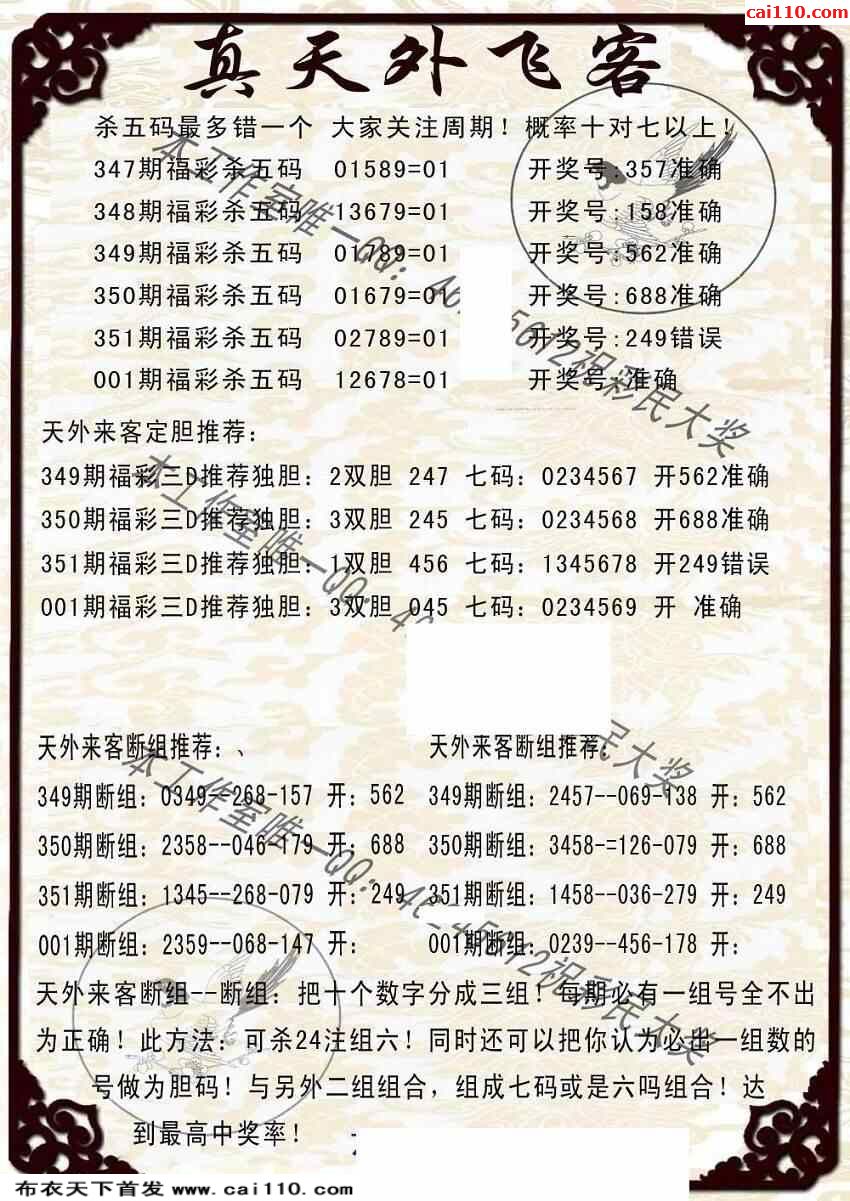 cai110.com
真天外飞客
杀五码最多错一个 大家关注周期！概率十对七以上！
347期福彩杀五码 01589=01 开奖号:357准确
348期福彩杀五码 13679=01 开奖号:158准确
349期福彩杀五码 01789=01 开奖号:562准确
350期福彩杀五码 01679=01 开奖号:688准确
351期福彩杀五码 02789=01 开奖号:249错误
001期福彩杀五码 12678=01 开奖号:准确
天外来客定胆推荐：
349期福彩三D推荐独胆：2双胆 247 七码：0234567 开562准确
350期福彩三D推荐独胆：3双胆 245 七码：0234568 开688准确
351期福彩三D推荐独胆：1双胆 456 七码：1345678 开249错误
001期福彩三D推荐独胆：3双胆 045 七码：0234569 开 准确
天外来客断组推荐：、 天外来客断组推荐：
349期断组：0349--268-157 开：562 349期断组：2457--069-138 开：562
350期断组：2358--046-179 开：688 350期断组：3458-=126-079 开：688
351期断组：1345--268-079 开：249 351期断组：1458--036-279 开：249
001期断组：2359--068-147 开： 001期断组：0239--456-178 开：
天外来客断组--断组：把十个数字分成三组！每期必有一组号全不出
为正确！此方法：可杀24注组六！同时还可以把你认为必出一组数的
号做为胆码！与另外二组组合，组成七码或是六吗组合！达
到最高中奖率！
本工作室唯一QQ：
祝彩民大奖
本工作室唯一QQ：
民大奖
本工作室唯一QQ：
祝彩民大奖
布衣天下首发 www.cai110.com